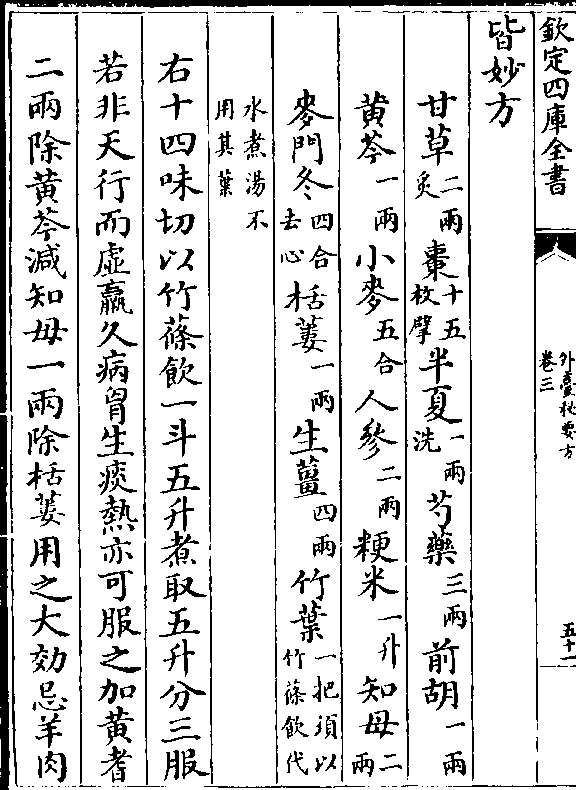 欽定四庫全書
外臺秘要方
卷三
五十一
皆妙方
甘草二兩炙棗十五枚擘半夏一兩洗芍藥三兩前胡一兩
黄芩一兩小麥五合人參二兩粳米一升知母二兩
麥門冬四合去心栝蔞一兩生薑四兩竹葉一把須以竹篠飲代
水煮湯不用其葉
右十四味切以竹篠飲一斗五升煮取五升分三服
若非天行而虛羸久病胷生痰熱亦可服之加黄耆
二兩除黄芩減知母一兩除栝蔞用之大効忌羊肉